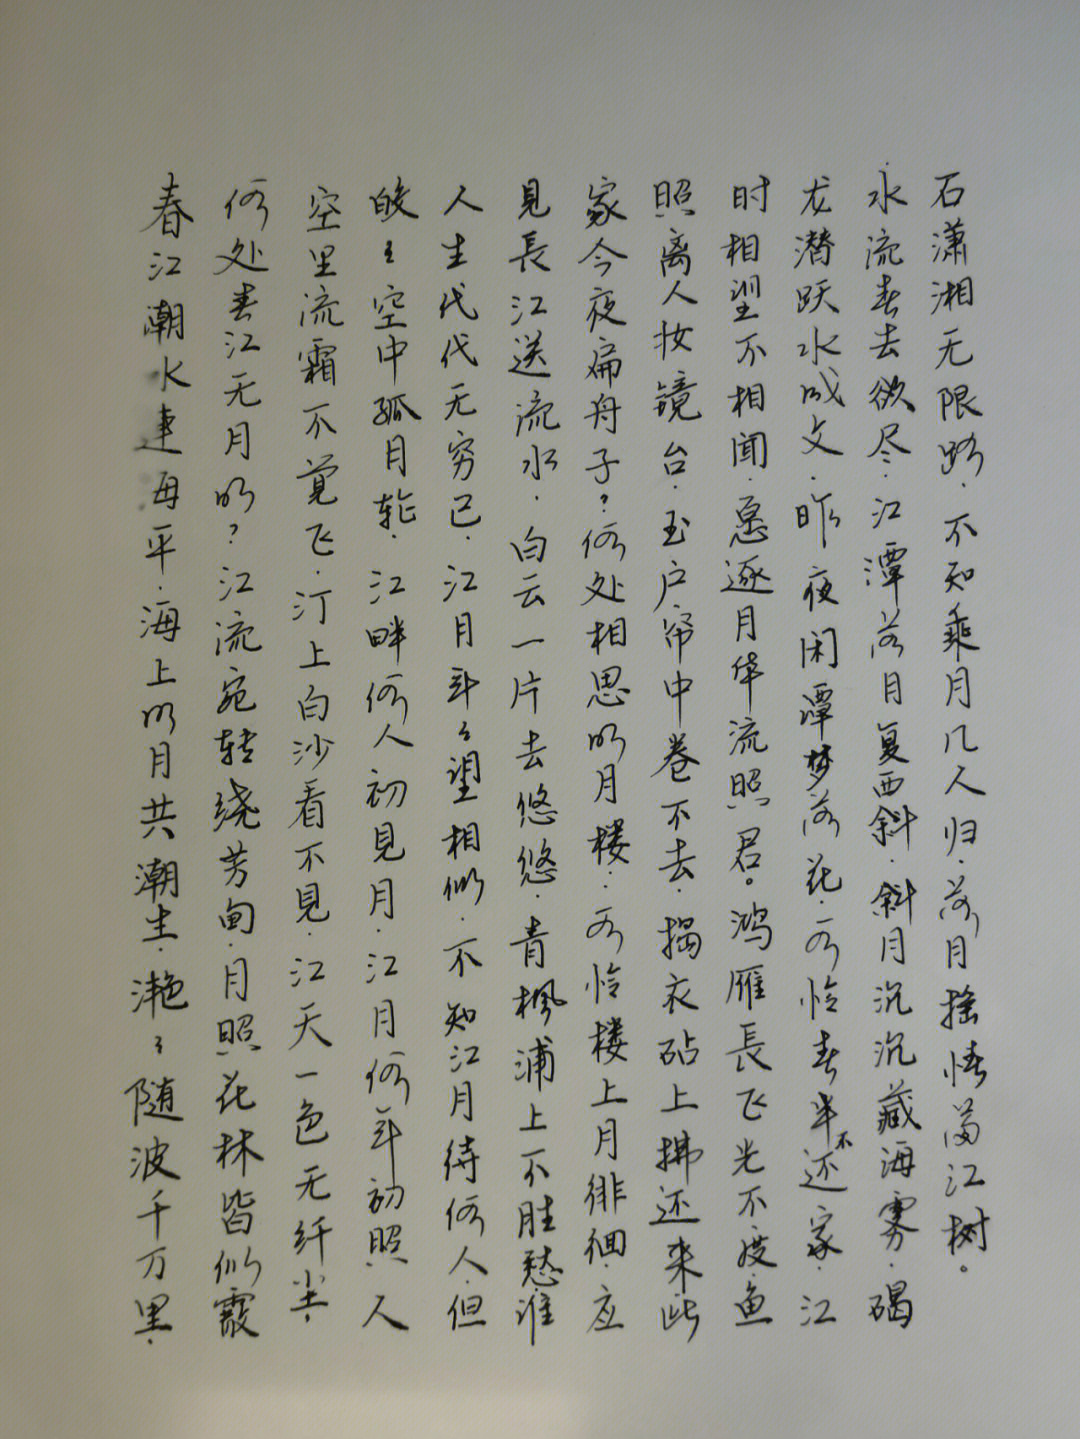 春江潮水連海平·海上明月共潮生·滟々随波千万里·
何处春江无月明?江流宛转绕芳甸·月照花林皆似霰
空里流霜不觉飞·汀上白沙看不見·江天一色无纤尘·
皎々空中孤月轮·江畔何人初見月·江月何年初照人
人生代代无穷已·江月年々望相似·不知江月待何人·但
見長江送流水·白云一片去悠悠·青枫浦上不胜愁谁
家今夜扁舟子?何处相思明月楼·可怜楼上月徘徊·应
照离人妆镜台·玉户帘中卷不去·捣衣砧上拂还来此
时相望不相闻·愿逐月华流照君。鸿雁長飞光不度·鱼
龙潜跃水成文·昨夜闲潭梦落花·可怜春半不还家·江
水流春去欲尽·江潭落月复西斜·斜月沉沉藏海雾·碣
石潇湘无限路·不知乘月几人归·落月摇情满江树。